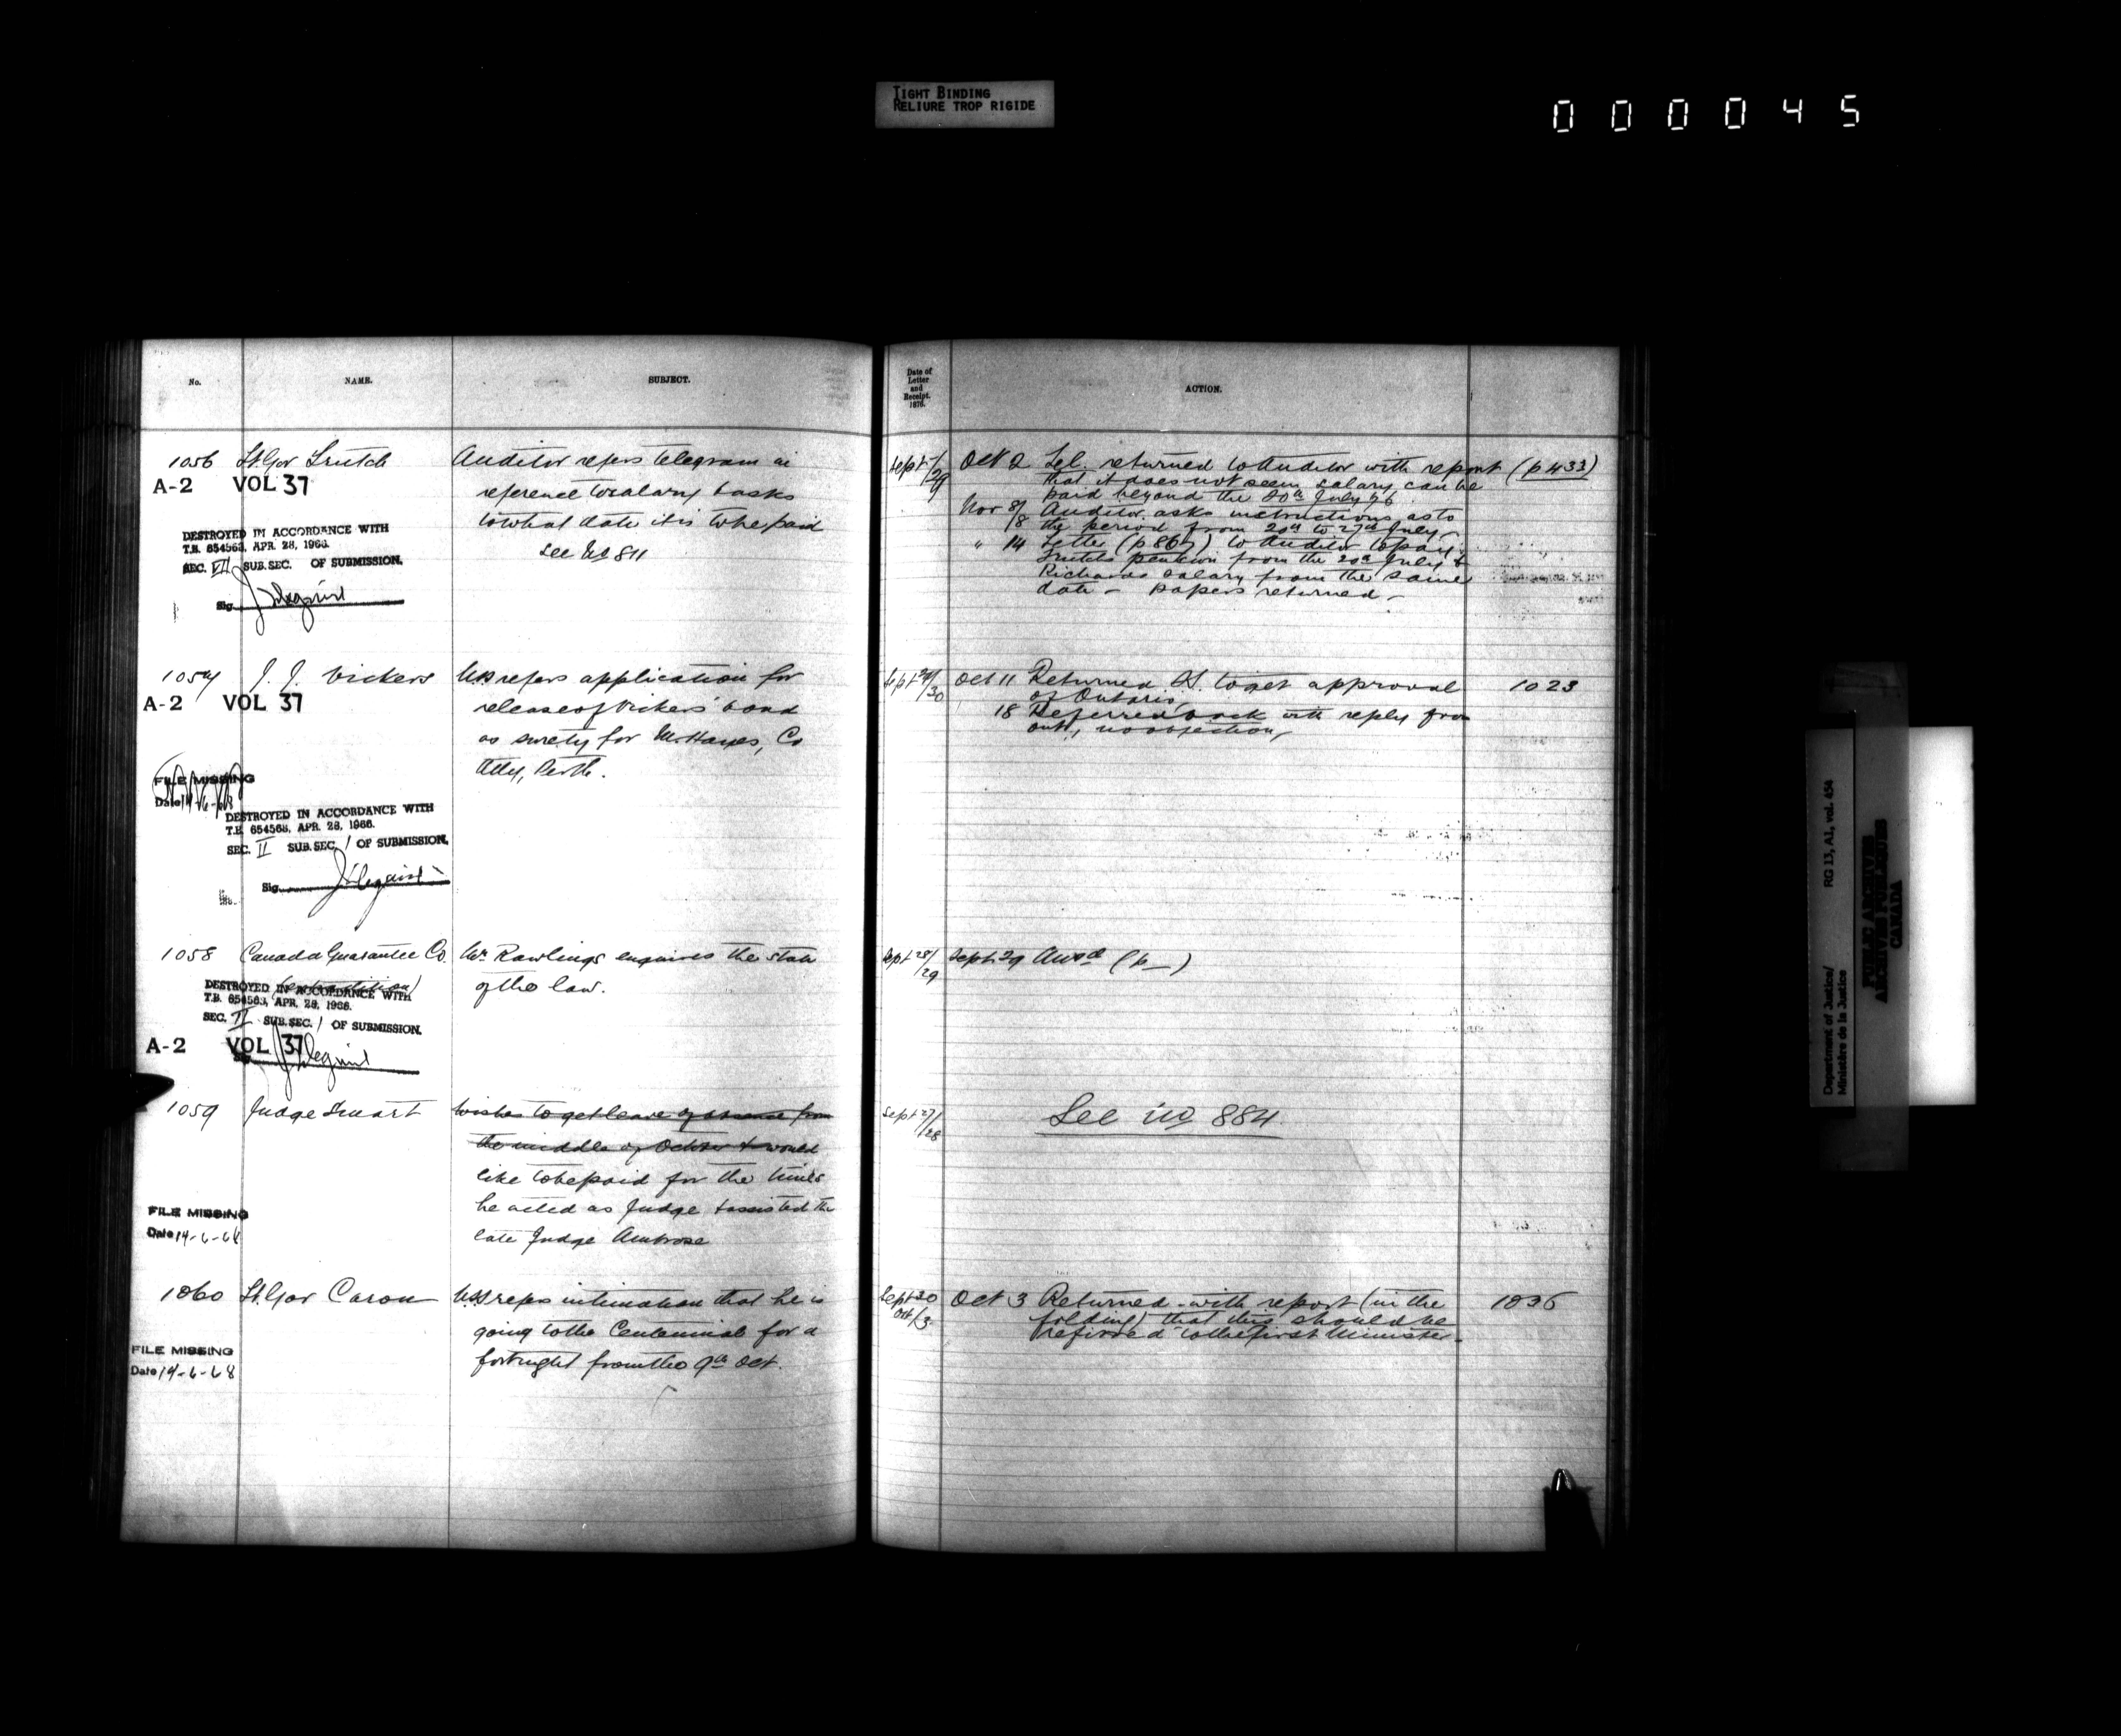 TIGHT BINDING
RELIURE TROP RIGIDE
000045
No.
NAME.
SUBJECT.
Date of
Letter
and
Receipt.
1876.
ACTION.
1056 Lt. Gov Trutch
A-2 VOL 37
DESTROYED IN ACCORDANCE WITH
T.B. 654563, APR. 28, 1966.
SEC. VII SUB. SEC. OF SUBMISSION.
Sig.
Auditor refers telegram in
reference to salary & asks
to what date it is to be paid
See No 811
Sept /29
Oct 2 Tel. returned to Auditor with report (p 433)
that it does not seem salary can be
paid beyond the 20th July 76.
Nov 8/8 Auditor asks instructions as to
the period from 20th to 27th July
" 14 Letter (p 867) to Auditor to pay
Trutch's pension from the 20th July &
Richards salary from the same
date - papers returned -
1057 J. J. Vickers
A-2 VOL 37
FILE MISSING
Date 14-6-68
DESTROYED IN ACCORDANCE WITH
T.B. 654563, APR. 28, 1966.
SEC. II SUB. SEC. 1 OF SUBMISSION.
Sig.
USS refers application for
release of Vickers' bond
as surety for Mr. Hayes, Co
Atty, Perth.
Sept 29/30
Oct 11 Returned S. to get approval
of Ontario,
18 Referred back with reply from
Ont., no objection,
1023
1058 Canada Guarantee Co.
DESTROYED IN ACCORDANCE WITH
T.B. 654563, APR. 28, 1966.
SEC. II SUB. SEC. 1 OF SUBMISSION.
A-2 VOL 37
Sig.
Mr Rawlings enquires the state
of the law.
Sept 28/29
Sept 29 Answd (p_)
1059 Judge Smart
FILE MISSING
Date 14-6-68
Wishes to get leave of absence from
the middle of October & would
like to be paid for the times
he acted as Judge & assisted the
late Judge Ambrose
Sept 27/28
See No 884
1060 Lt. Gov Caron
FILE MISSING
Date 14-6-68
USS refers intimation that he is
going to the Centennial for a
fortnight from the 9th Oct.
Sept 30
Oct/3
Oct 3 Returned with report (in the
folding) that this should be
referred to the first Minister.
1036
Department of Justice/
Ministère de la Justice
RG 13, A1, vol. 454
PUBLIC ARCHIVES
ARCHIVES PUBLIQUES
CANADA